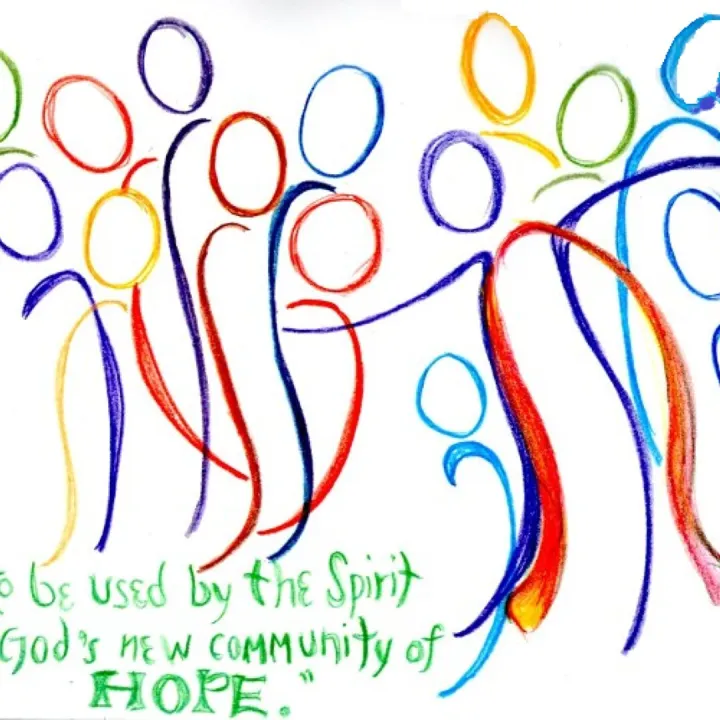 to be used by the Spirit
God's new community of
HOPE."